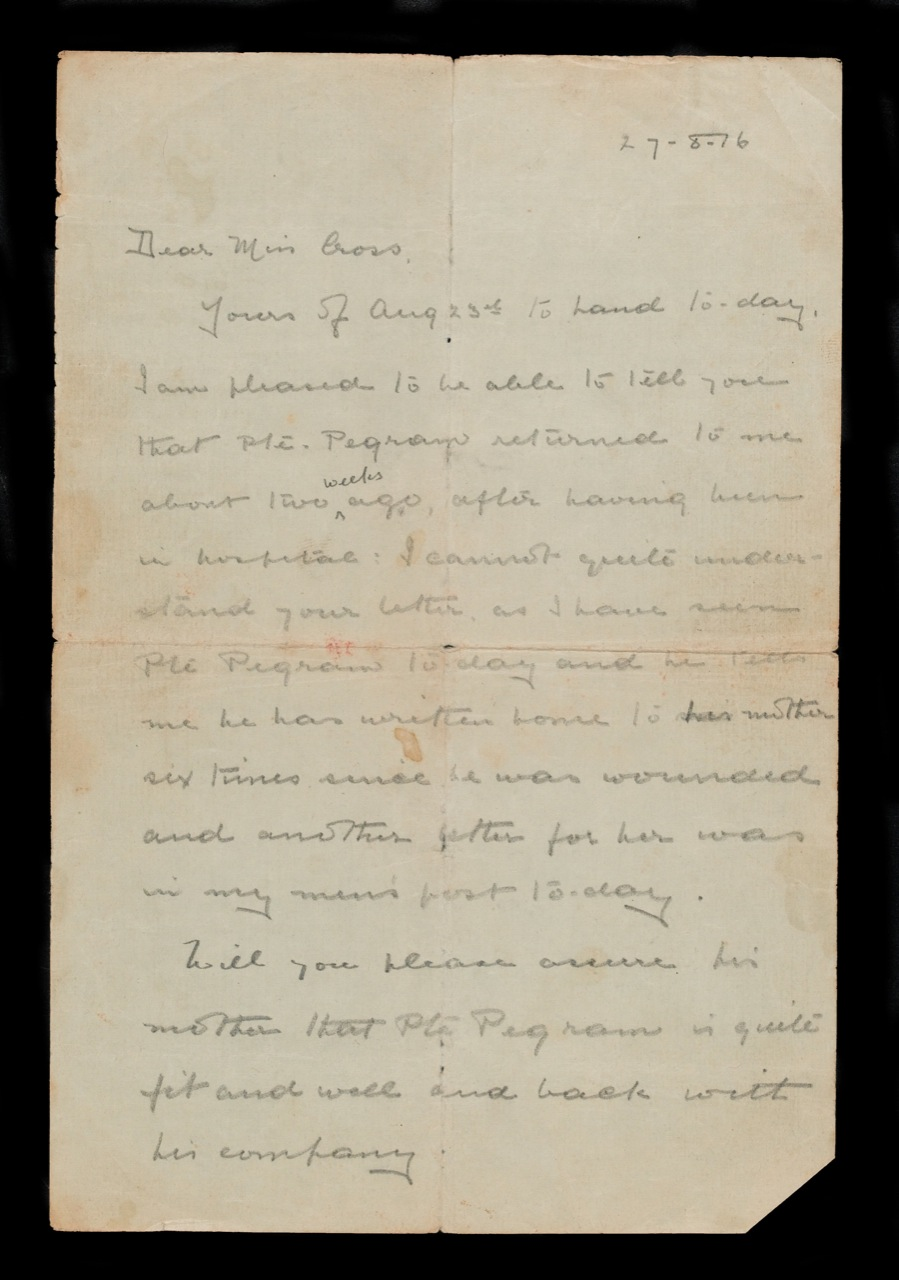 27-8-16
Dear Miss Cross,
Yours of Aug 23rd to hand to-day.
I am pleased to be able to tell you
that Pte. Pegram returned to me
about two weeks ago, after having been
in hospital: I cannot quite under-
stand your letter, as I have seen
Pte Pegram to-day and he tells
me he has written home to his mother
six times since he was wounded
and another letter for her was
in my men's post to-day.
Will you please assure his
mother that Pte Pegram is quite
fit and well and back with
his company.